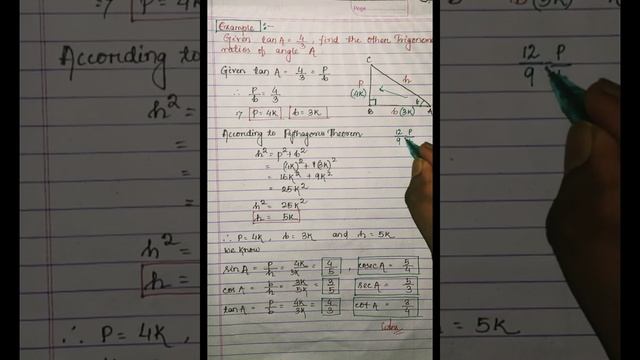 Page
Example :-
Given tan A = 4/3, find the other Trigonome
ratios of angle A
Given tan A = 4/3 = P/b
∴ P/b = 4/3
⇒ P = 4K b = 3K
C
P
(4K)
h
B b(3K) A
According to Pythagoras Theorem
12 P
9
h² = p² + b²
= (4K)² + (3K)²
= 16K² + 9K²
= 25K²
h² = 25K²
h = 5K
∴ P = 4K, b = 3K and h = 5K
we know
sin A = P/h = 4K/ = 4/5 , cosec A = 5/4
cos A = b/h = 3K/5K = 3/5 sec A = 5/3
tan A = P/b = 4K/3K = 4/3 cot A = 3/4